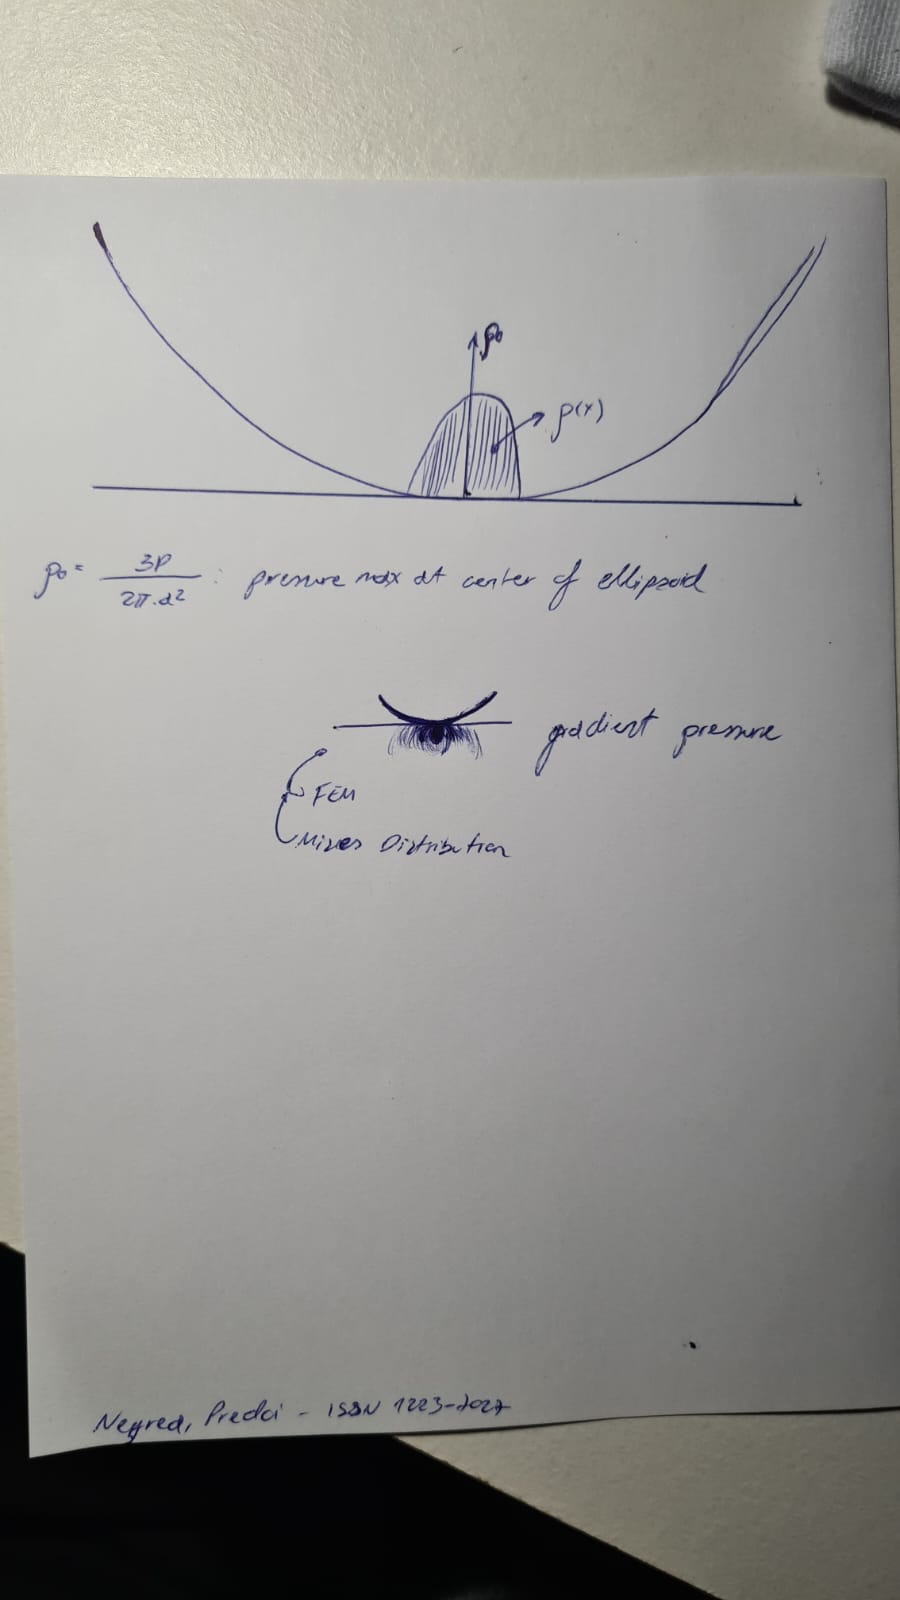 p₀
p(x)
p₀ = 3P / 2π.a² : pressure max at center of ellipsoid
gradient pressure
FEM
Mises Distribution
Predoi - ISSN 1223-7027